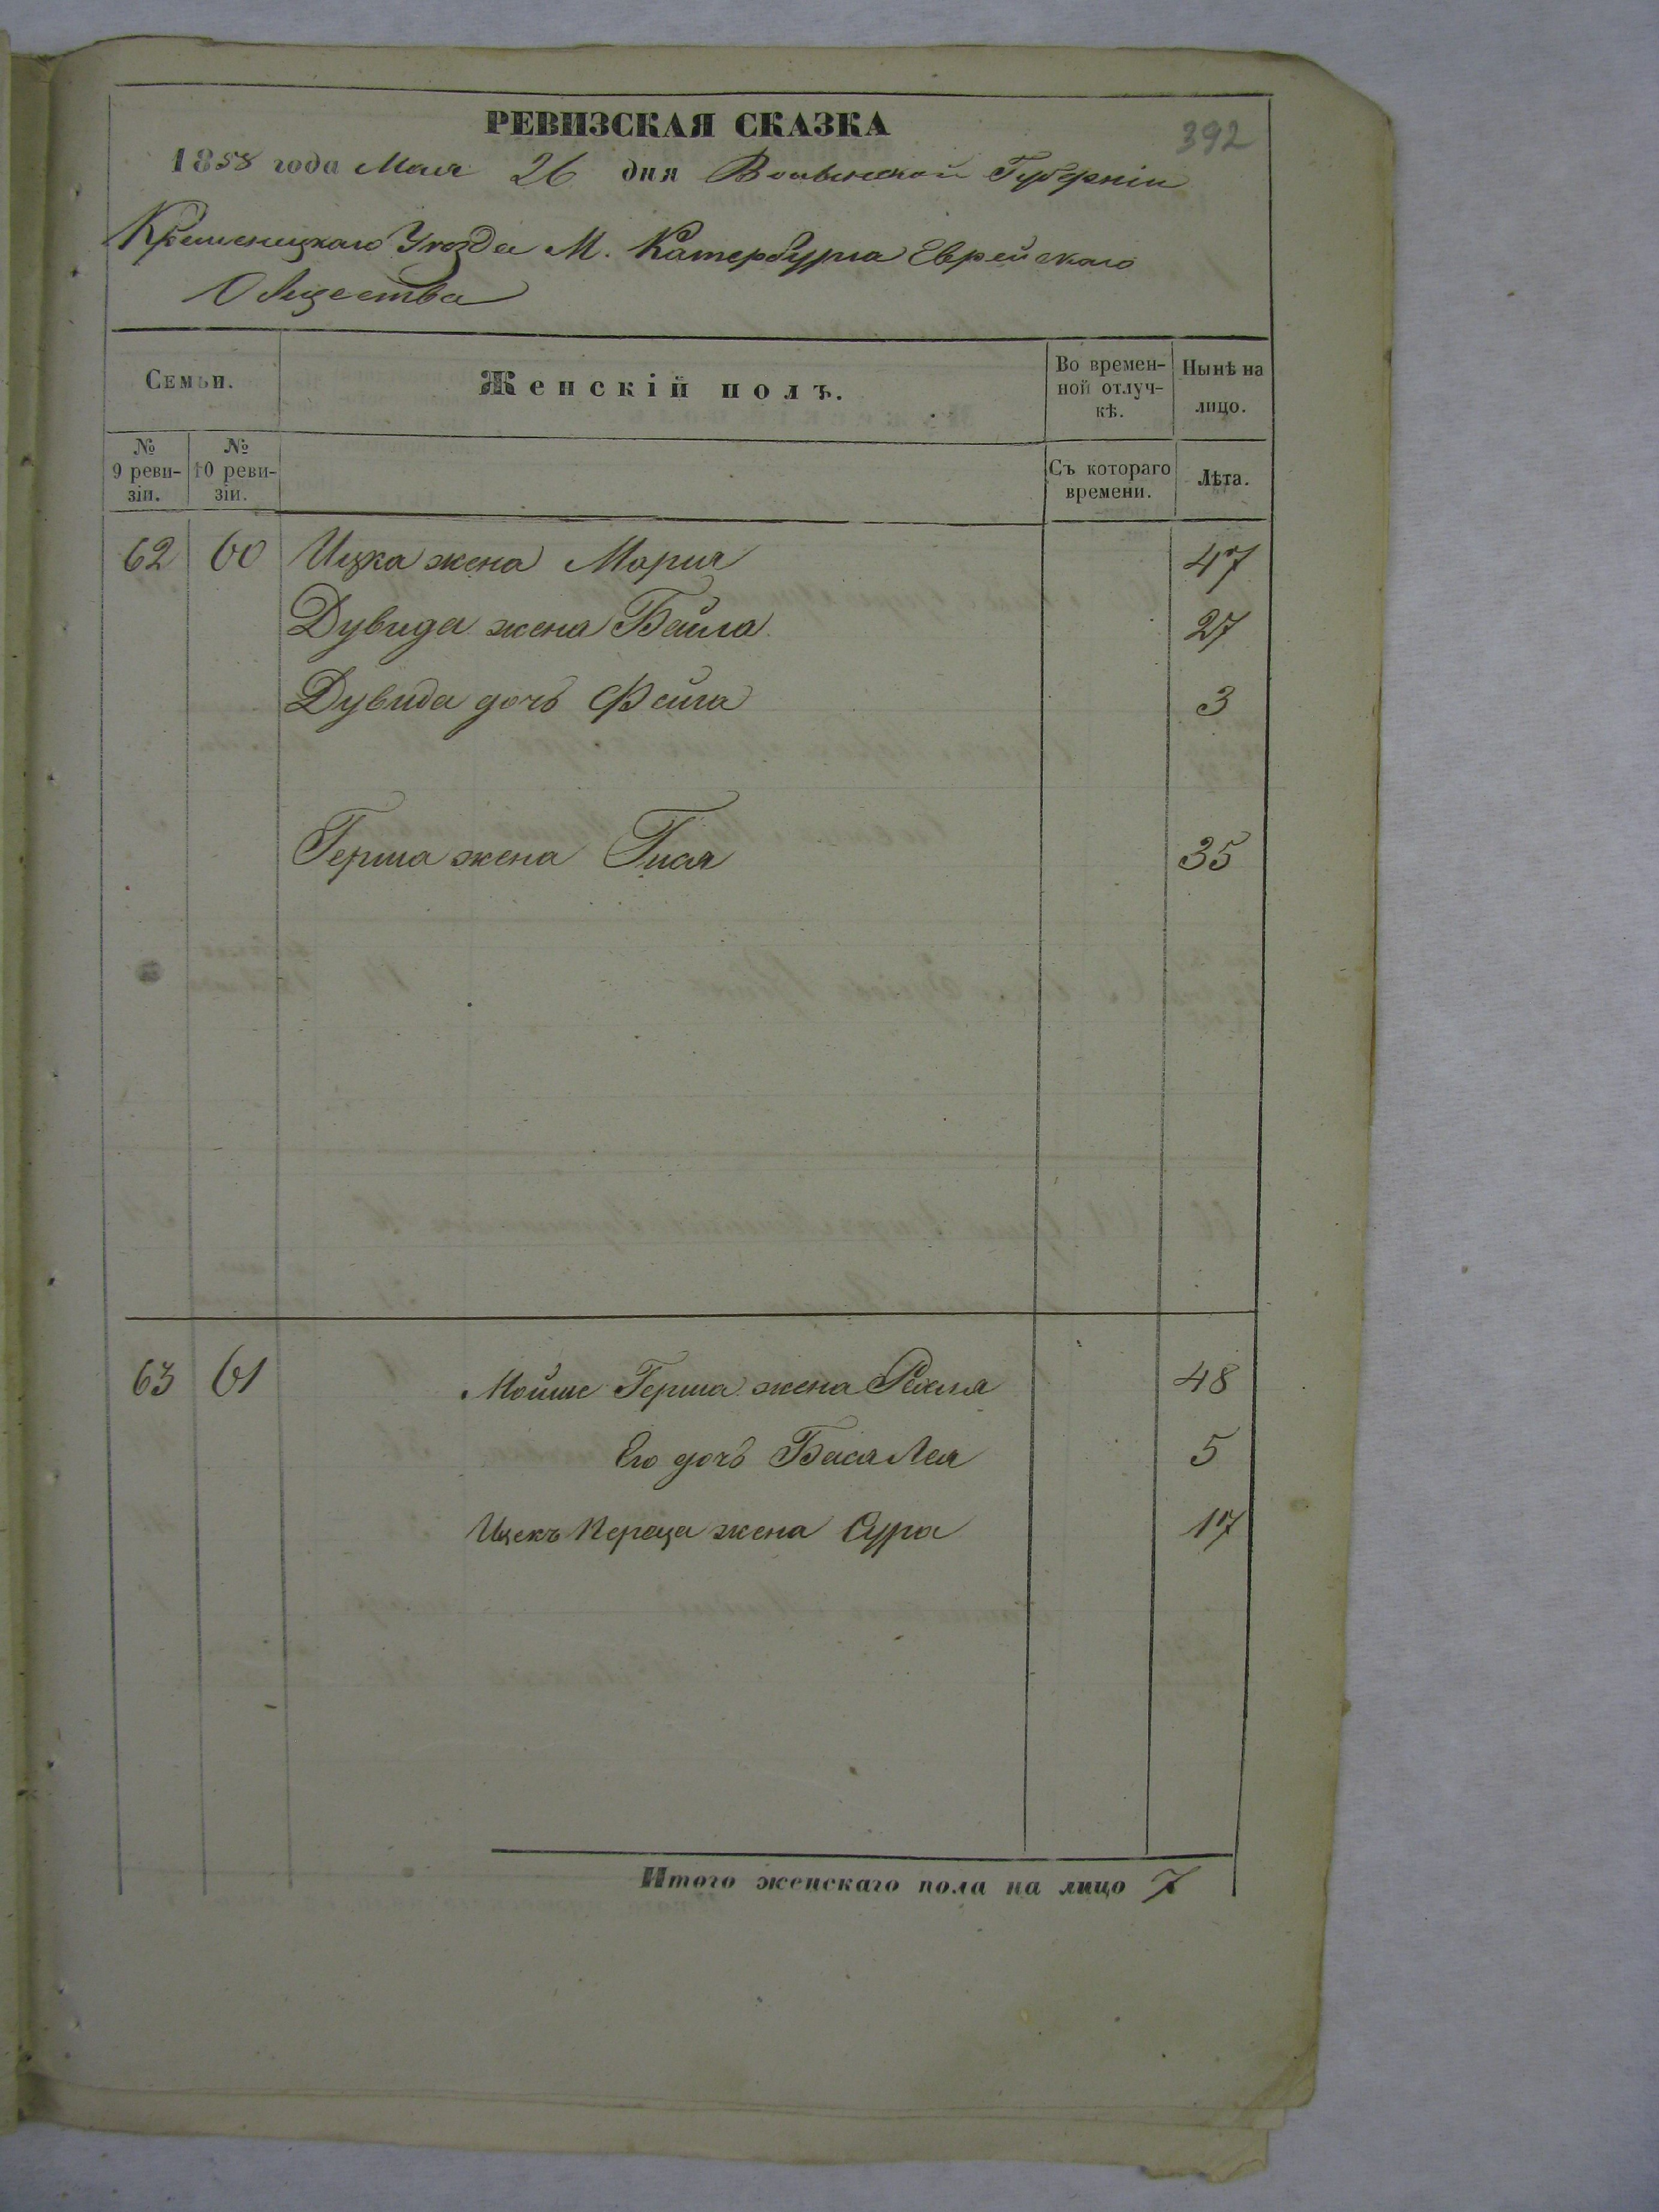 РЕВИЗСКАЯ СКАЗКА
392
1858 года Мая 26 дня Волынской Губерніи
Кременецкаго Уѣзда М. Катербурга Еврейскаго
Общества
Семьи.
Женскій полъ.
Во времен-
ной отлуч-
кѣ.
Нынѣ на
лицо.
№
9 реви-
зіи.
№
10 реви-
зіи.
Съ котораго
времени.
Лѣта.
62 60 Ицка жена Мария 47
Дувида жена Бейла 27
Дувида дочь Фейга 3
Герша жена Гися 35
63 61 Мойше Герша жена Рехля 48
Его дочь Бася Лея 5
Ицекъ Переца жена Сура 17
Итого женскаго пола на лицо 7